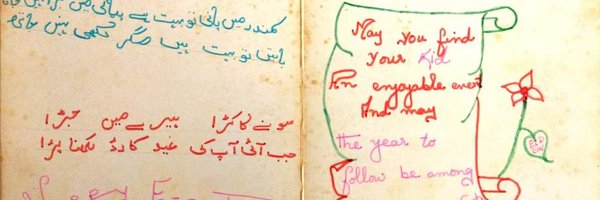 سمندر میں پانی تو بہت ہے پیالی میں
باتیں تو بہت ہیں مگر لکھی نہیں جاتی
سونے کا کڑا ہیرے میں جڑا
جب آئی آپ کی عید کارڈ لکھنا پڑا
May you find
Your Kid
An enjoyable event
And may
the year to
follow be among